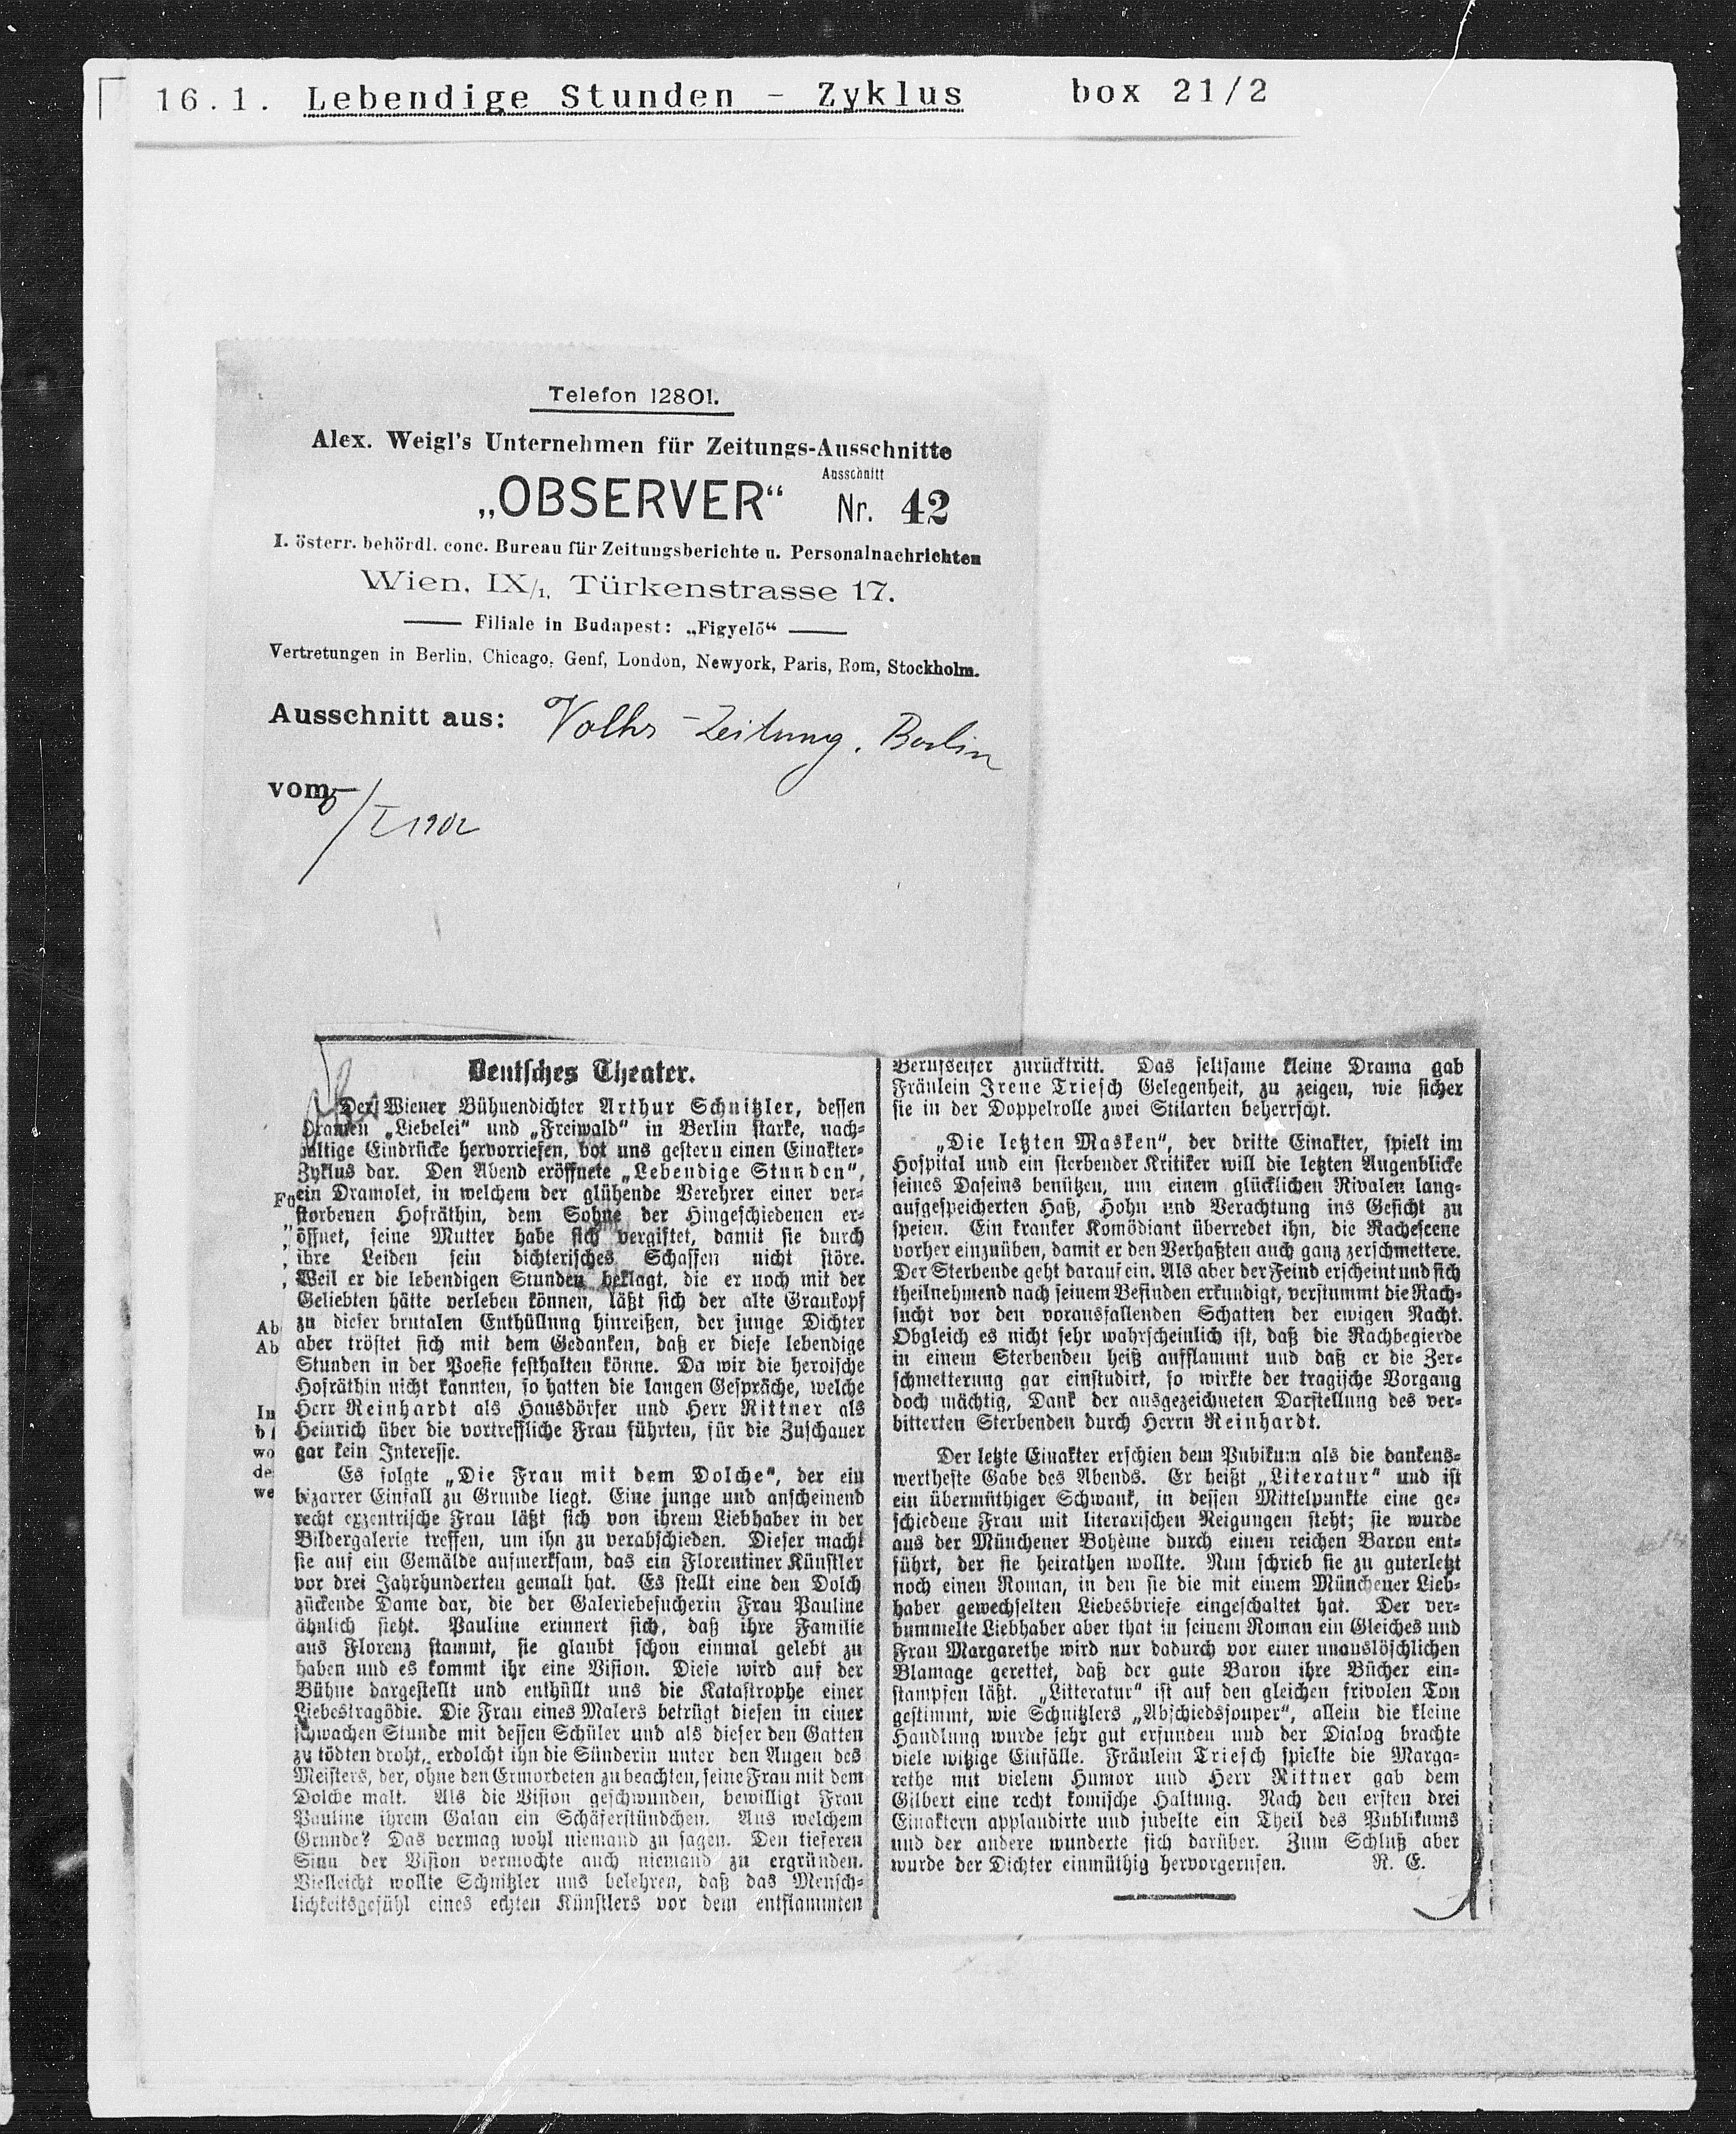 16.1. Lebendige Stunden - Zyklus box 21/2
Telefon 12801.
Alex. Weigl's Unternehmen für Zeitungs-Ausschnitte
Ausschnitt
„OBSERVER“ Nr. 42
I. österr. behördl. conc. Bureau für Zeitungsberichte u. Personalnachrichten
Wien, IX/1, Türkenstrasse 17.
Filiale in Budapest: „Figyelő“
Vertretungen in Berlin, Chicago, Genf, London, Newyork, Paris, Rom, Stockholm.
Ausschnitt aus: Volks-Zeitung. Berlin
vom 5/I 1902
Deutsches Theater.
Der Wiener Bühnendichter Arthur Schnitzler, dessen
Dramen „Liebelei“ und „Freiwald“ in Berlin starke, nach-
haltige Eindrücke hervorriefen, bot uns gestern einen Einakter-
Zyklus dar. Den Abend eröffnete „Lebendige Stunden“,
ein Dramolet, in welchem der glühende Verehrer einer ver-
storbenen Hofräthin, dem Sohne der Hingeschiedenen er-
öffnet, seine Mutter habe sich vergiftet, damit sie durch
ihre Leiden sein dichterisches Schaffen nicht störe.
Weil er die lebendigen Stunden beklagt, die er noch mit der
Geliebten hätte verleben können, läßt sich der alte Graukopf
zu dieser brutalen Enthüllung hinreißen, der junge Dichter
aber tröstet sich mit dem Gedanken, daß er diese lebendige
Stunden in der Poesie festhalten könne. Da wir die heroische
Hofräthin nicht kannten, so hatten die langen Gespräche, welche
Herr Reinhardt als Hausdörfer und Herr Rittner als
Heinrich über die vortreffliche Frau führten, für die Zuschauer
gar kein Interesse.
Es folgte „Die Frau mit dem Dolche“, der ein
bizarrer Einfall zu Grunde liegt. Eine junge und anscheinend
recht exzentrische Frau läßt sich von ihrem Liebhaber in der
Bildergalerie treffen, um ihn zu verabschieden. Dieser macht
sie auf ein Gemälde aufmerksam, das ein Florentiner Künstler
vor drei Jahrhunderten gemalt hat. Es stellt eine den Dolch
zückende Dame dar, die der Galeriebesucherin Frau Pauline
ähnlich sieht. Pauline erinnert sich, daß ihre Familie
aus Florenz stammt, sie glaubt schon einmal gelebt zu
haben und es kommt ihr eine Vision. Diese wird auf der
Bühne dargestellt und enthüllt uns die Katastrophe einer
Liebestragödie. Die Frau eines Malers betrügt diesen in einer
schwachen Stunde mit dessen Schüler und als dieser den Gatten
zu tödten droht, erdolcht ihn die Sünderin unter den Augen des
Meisters, der, ohne den Ermordeten zu beachten, seine Frau mit dem
Dolche malt. Als die Vision geschwunden, bewilligt Frau
Pauline ihrem Galan ein Schäferstündchen. Aus welchem
Grunde? Das vermag wohl niemand zu sagen. Den tieferen
Sinn der Vision vermochte auch niemand zu ergründen.
Vielleicht wollte Schnitzler uns belehren, daß das Mensch-
lichkeitsgefühl eines echten Künstlers vor dem entflammten
Berufseifer zurücktritt. Das seltsame kleine Drama gab
Fräulein Irene Triesch Gelegenheit, zu zeigen, wie sicher
sie in der Doppelrolle zwei Stilarten beherrscht.
„Die letzten Masken“, der dritte Einakter, spielt im
Hospital und ein sterbender Kritiker will die letzten Augenblicke
seines Daseins benützen, um einem glücklichen Rivalen lang-
aufgespeicherten Haß, Hohn und Verachtung ins Gesicht zu
speien. Ein kranker Komödiant überredet ihn, die Rachescene
vorher einzuüben, damit er den Verhaßten auch ganz zerschmettere.
Der Sterbende geht darauf ein. Als aber der Feind erscheint und sich
theilnehmend nach seinem Befinden erkundigt, verstummt die Rach-
sucht vor den vorausfallenden Schatten der ewigen Nacht.
Obgleich es nicht sehr wahrscheinlich ist, daß die Rachbegierde
in einem Sterbenden heiß aufflammt und daß er die Zer-
schmetterung gar einstudirt, so wirkte der tragische Vorgang
doch mächtig, Dank der ausgezeichneten Darstellung des ver-
bitterten Sterbenden durch Herrn Reinhardt.
Der letzte Einakter erschien dem Pubikum als die dankens-
wertheste Gabe des Abends. Er heißt „Literatur“ und ist
ein übermüthiger Schwank, in dessen Mittelpunkte eine ge-
schiedene Frau mit literarischen Neigungen steht; sie wurde
aus der Münchener Bohème durch einen reichen Baron ent-
führt, der sie heirathen wollte. Nun schrieb sie zu guterletzt
noch einen Roman, in den sie die mit einem Münchener Lieb-
haber gewechselten Liebesbriefe eingeschaltet hat. Der ver-
bummelte Liebhaber aber that in seinem Roman ein Gleiches und
Frau Margarethe wird nur dadurch vor einer unauslöschlichen
Blamage gerettet, daß der gute Baron ihre Bücher ein-
stampfen läßt. „Litteratur“ ist auf den gleichen frivolen Ton
gestimmt, wie Schnitzlers „Abschiedssouper“, allein die kleine
Handlung wurde sehr gut erfunden und der Dialog brachte
viele witzige Einfälle. Fräulein Triesch spielte die Marga-
rethe mit vielem Humor und Herr Rittner gab dem
Gilbert eine recht komische Haltung. Nach den ersten drei
Einaktern applaudirte und jubelte ein Theil des Publikums
und der andere wunderte sich darüber. Zum Schluß aber
wurde der Dichter einmüthig hervorgerufen. R. E.
Ab
Ab
In
wo
de
we